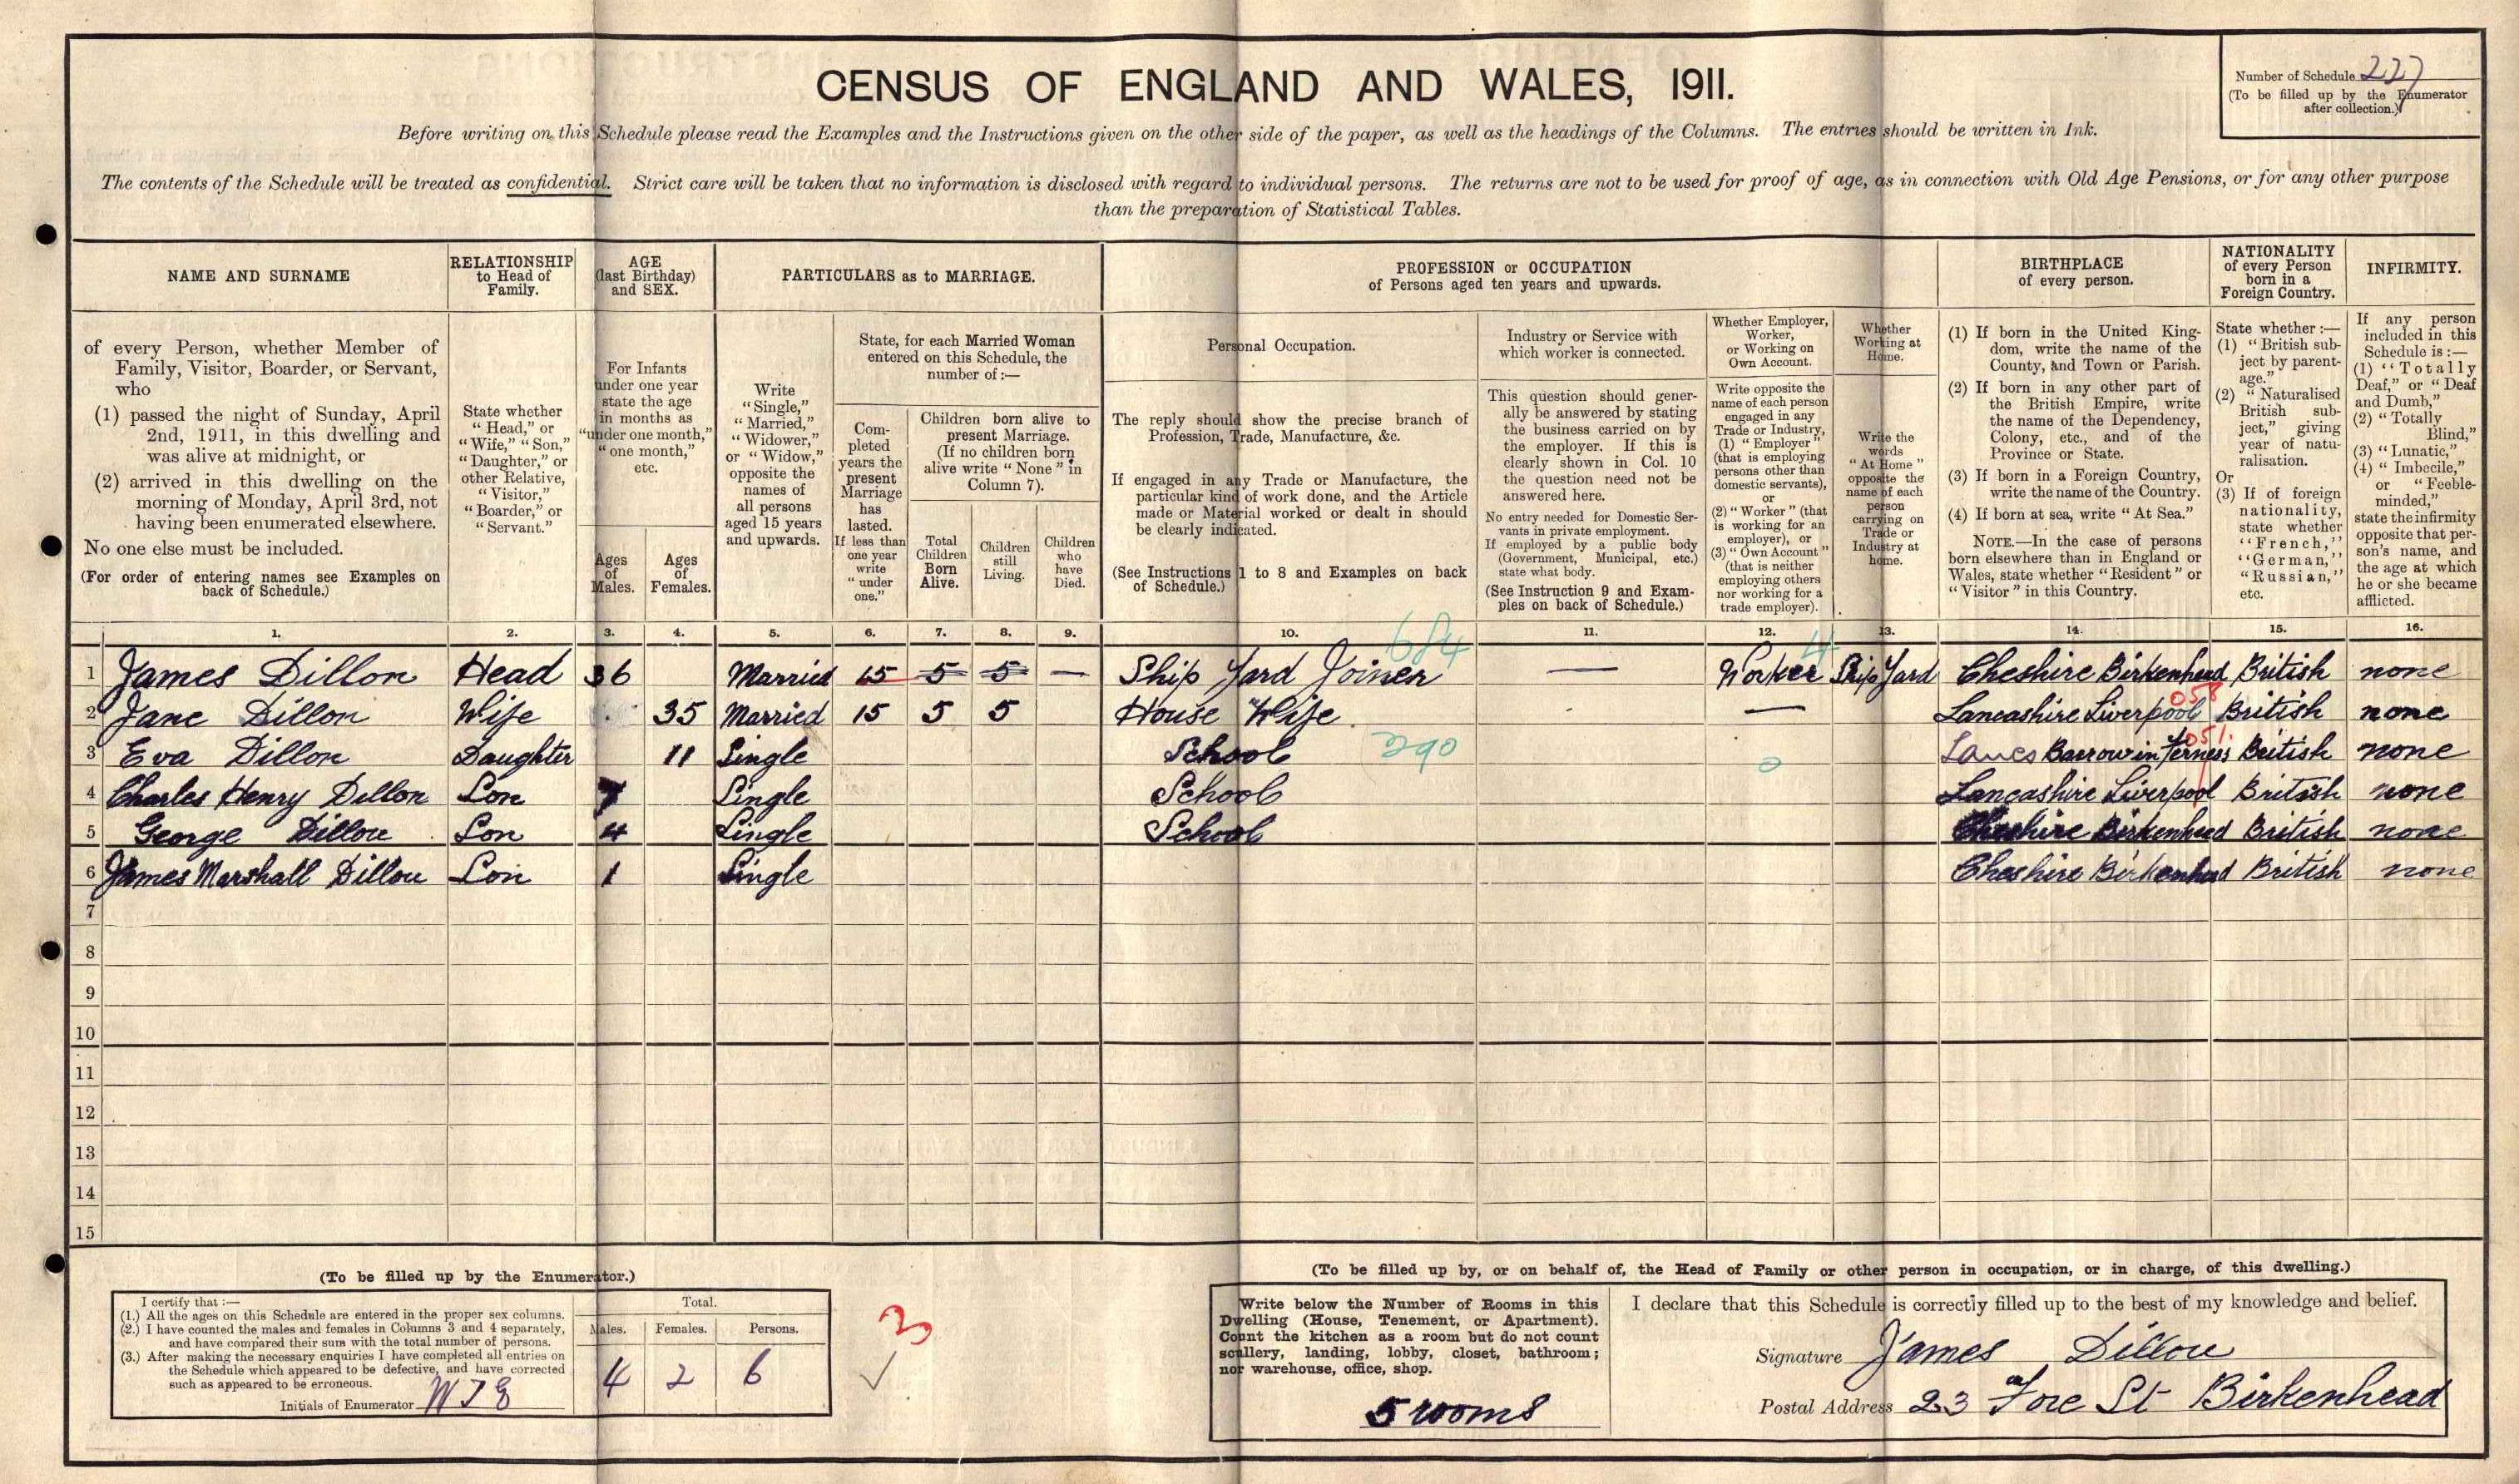 CENSUS OF ENGLAND AND WALES, 1911.
Number of Schedule 227
(To be filled up by the Enumerator
after collection.)
Before writing on this Schedule please read the Examples and the Instructions given on the other side of the paper, as well as the headings of the Columns. The entries should be written in Ink.
The contents of the Schedule will be treated as confidential. Strict care will be taken that no information is disclosed with regard to individual persons. The returns are not to be used for proof of age, as in connection with Old Age Pensions, or for any other purpose
than the preparation of Statistical Tables.
NAME AND SURNAME
RELATIONSHIP
to Head of
Family.
AGE
(last Birthday)
and SEX.
PARTICULARS as to MARRIAGE.
PROFESSION or OCCUPATION
of Persons aged ten years and upwards.
BIRTHPLACE
of every person.
NATIONALITY
of every Person
born in a
Foreign Country.
INFIRMITY.
of every Person, whether Member of
Family, Visitor, Boarder, or Servant,
who
(1) passed the night of Sunday, April
2nd, 1911, in this dwelling and
was alive at midnight, or
(2) arrived in this dwelling on the
morning of Monday, April 3rd, not
having been enumerated elsewhere.
No one else must be included.
(For order of entering names see Examples on
back of Schedule.)
State whether
"Head," or
"Wife," "Son,"
"Daughter," or
other Relative,
"Visitor,"
"Boarder," or
"Servant."
For Infants
under one year
state the age
in months as
"under one month,"
"one month,"
etc.
Ages
of
Males.
Ages
of
Females.
Write
"Single,"
"Married,"
"Widower,"
or "Widow,"
opposite the
names of
all persons
aged 15 years
and upwards.
State, for each Married Woman
entered on this Schedule, the
number of:—
Com-
pleted
years the
present
Marriage
has
lasted.
If less than
one year
write
"under
one."
Children born alive to
present Marriage.
(If no children born
alive write "None" in
Column 7).
Total
Children
Born
Alive.
Children
still
Living.
Children
who
have
Died.
Personal Occupation.
The reply should show the precise branch of
Profession, Trade, Manufacture, &c.
If engaged in any Trade or Manufacture, the
particular kind of work done, and the Article
made or Material worked or dealt in should
be clearly indicated.
(See Instructions 1 to 8 and Examples on back
of Schedule.)
Industry or Service with
which worker is connected.
This question should gener-
ally be answered by stating
the business carried on by
the employer. If this is
clearly shown in Col. 10
the question need not be
answered here.
No entry needed for Domestic Ser-
vants in private employment.
If employed by a public body
(Government, Municipal, etc.)
state what body.
(See Instruction 9 and Exam-
ples on back of Schedule.)
Whether Employer,
Worker,
or Working on
Own Account.
Write opposite the
name of each person
engaged in any
Trade or Industry,
(1) "Employer"
(that is employing
persons other than
domestic servants),
or
(2) "Worker" (that
is working for an
employer), or
(3) "Own Account"
(that is neither
employing others
nor working for a
trade employer).
Whether
Working at
Home.
Write the
words
"At Home"
opposite the
name of each
person
carrying on
Trade or
Industry at
home.
(1) If born in the United King-
dom, write the name of the
County, and Town or Parish.
(2) If born in any other part of
the British Empire, write
the name of the Dependency,
Colony, etc., and of the
Province or State.
(3) If born in a Foreign Country,
write the name of the Country.
(4) If born at sea, write "At Sea."
NOTE.—In the case of persons
born elsewhere than in England or
Wales, state whether "Resident" or
"Visitor" in this Country.
State whether:—
(1) "British sub-
ject by parent-
age."
(2) "Naturalised
British sub-
ject," giving
year of natu-
ralisation.
Or
(3) If of foreign
nationality,
state whether
"French,"
"German,"
"Russian,"
etc.
If any person
included in this
Schedule is:—
(1) "Totally
Deaf," or "Deaf
and Dumb,"
(2) "Totally
Blind,"
(3) "Lunatic,"
(4) "Imbecile,"
or "Feeble-
minded,"
state the infirmity
opposite that per-
son's name, and
the age at which
he or she became
afflicted.
1. 2. 3. 4. 5. 6. 7. 8. 9. 10. 11. 12. 13. 14. 15. 16.
684 4
1 James Dillon Head 36 Married 15 5 5 — Ship Yard Joiner — Worker Ship Yard Cheshire Birkenhead British none
058
2 Jane Dillon Wife 35 Married 15 5 5 House Wife — Lancashire Liverpool British none
051
3 Eva Dillon Daughter 11 Single School 390 0 Lancs Barrow in Ferness British none
4 Charles Henry Dillon Son 7 Single School Lancashire Liverpool British none
5 George Dillon Son 4 Single School Cheshire Birkenhead British none
6 James Marshall Dillon Son 1 Single Cheshire Birkenhead British none
7
8
9
10
11
12
13
14
15
(To be filled up by the Enumerator.)
I certify that:—
(1.) All the ages on this Schedule are entered in the proper sex columns.
(2.) I have counted the males and females in Columns 3 and 4 separately,
and have compared their sum with the total number of persons.
(3.) After making the necessary enquiries I have completed all entries on
the Schedule which appeared to be defective, and have corrected
such as appeared to be erroneous.
Initials of Enumerator
Total.
Males. Females. Persons.
4 2 6
3
(To be filled up by, or on behalf of, the Head of Family or other person in occupation, or in charge, of this dwelling.)
Write below the Number of Rooms in this
Dwelling (House, Tenement, or Apartment).
Count the kitchen as a room but do not count
scullery, landing, lobby, closet, bathroom;
nor warehouse, office, shop.
5 rooms
I declare that this Schedule is correctly filled up to the best of my knowledge and belief.
Signature James Dillon
Postal Address 23 Fore St Birkenhead